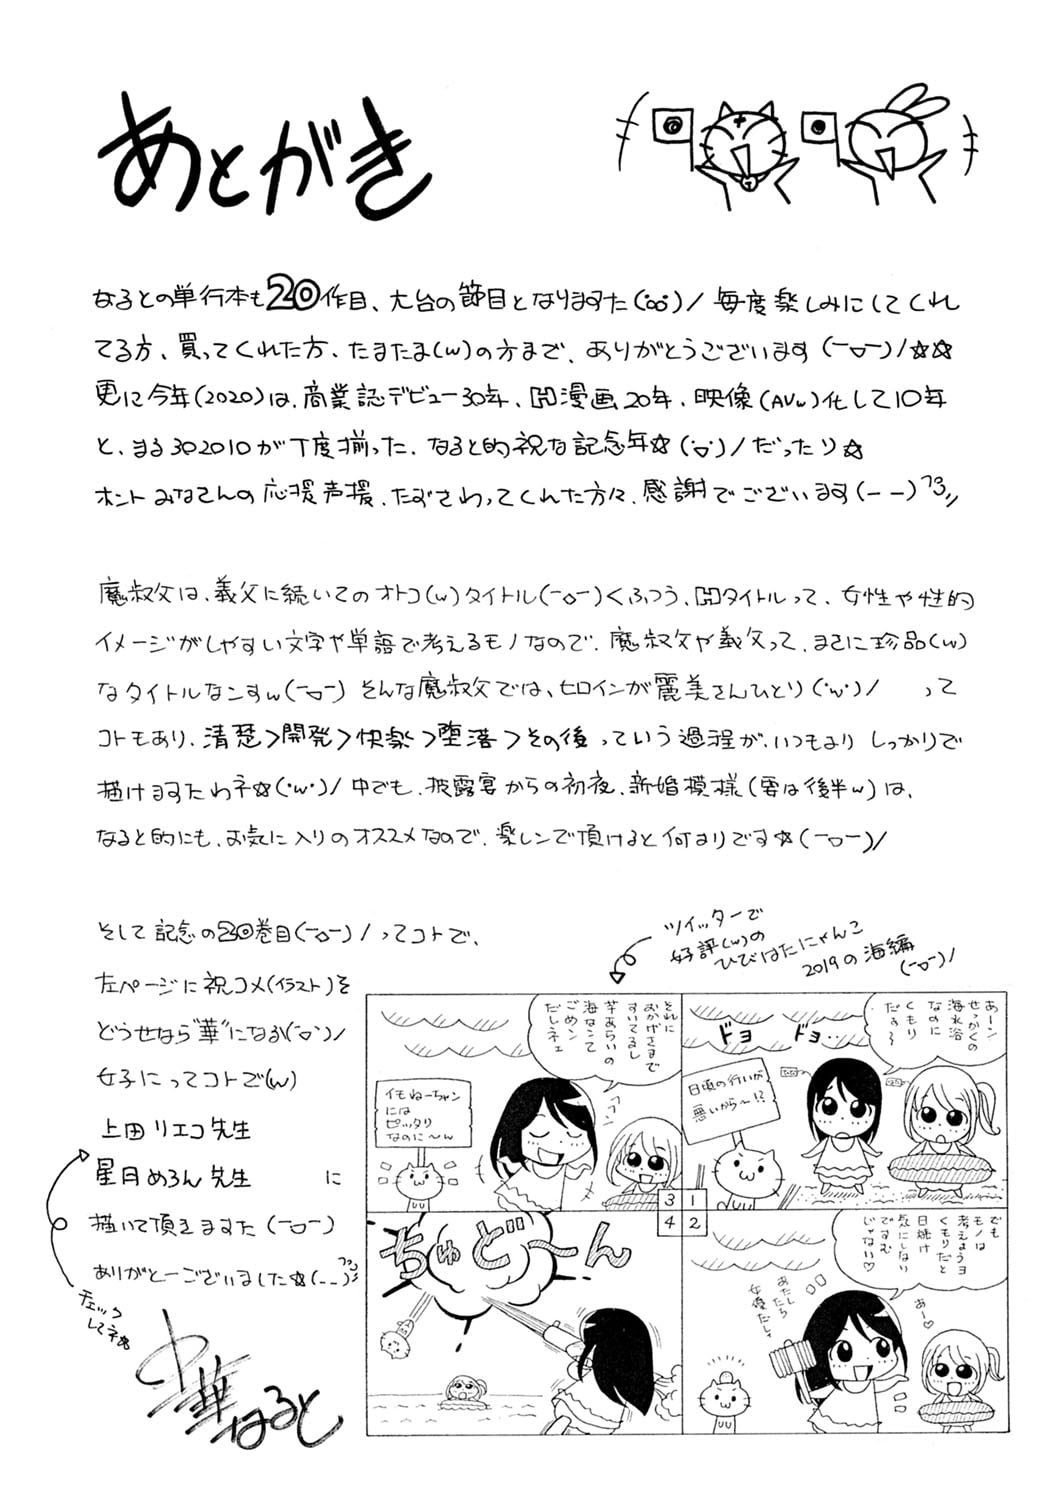 あとがき
なるとの単行本も20作目、大台の節目となりますた(°▽°)/ 毎度楽しみにしてくれ
てる方、買ってくれた方、たまたま(w)の方まで、ありがとうございます(ー▽ー)/☆☆
更に今年(2020)は、商業誌デビュー30年、H漫画20年、映像(AVw)化して10年
と、まる302010が丁度揃った、なると的祝な記念年☆(°▽°)/だったり☆
ホントみなさんの応援声援、たずさわってくれた方々、感謝でございます(ーー)フコ〃
魔叔父は、義父に続いてのオトコ(w)タイトル(ー▽ー)くふつう、Hタイトルって、女性や性的
イメージがしやすい文字や単語で考えるモノなので、魔叔父や義父って、まさに珍品(w)
なタイトルなンすw(ー▽ー) そんな魔叔父では、ヒロインが麗美さんひとり(°w°)/ って
コトもあり、清楚>開発>快楽>堕落>その後 っていう過程が、いつもより しっかりで
描けますたわネ☆(・w・)/ 中でも、披露宴からの初夜、新婚模様(要は後半w)は、
なると的にも、お気に入りのオススメなので、楽しンで頂けると何よりです☆(ー▽ー)/
そして記念の20巻目(ー▽ー)/ってコトで、
左ページに祝コメ(イラスト)を
どうせなら“華”になる(°▽°)/
女子にってコトで(w)
上田リエコ先生
星月めろん先生 に
描いて頂きますた(ー▽ー)
ありがとーございました☆(ーー)フコ〃
チェック
してネ☆
中華なると
ツイッターで
好評(w)の
ひびはたにゃんこ
2019の海編
(ー▽ー)/
1
あーン
せっかくの
海水浴
なのに
くもり
だす〜
ドヨ ドヨ‥
日頃の行いが
悪いから〜!?
2
でも
モノは
考えようヨ
くもりだと
日焼け
気にしない
ですむ
じゃない♡
あたしら
女優だし。
あー♡
3
それに
おかげさまで
すいてるし
芋あらいの
海なンて
ごめン
だしネェ
フフン
イモねーちゃン
には
ピッタリ
なのに〜ん
4
ちゅど〜ん